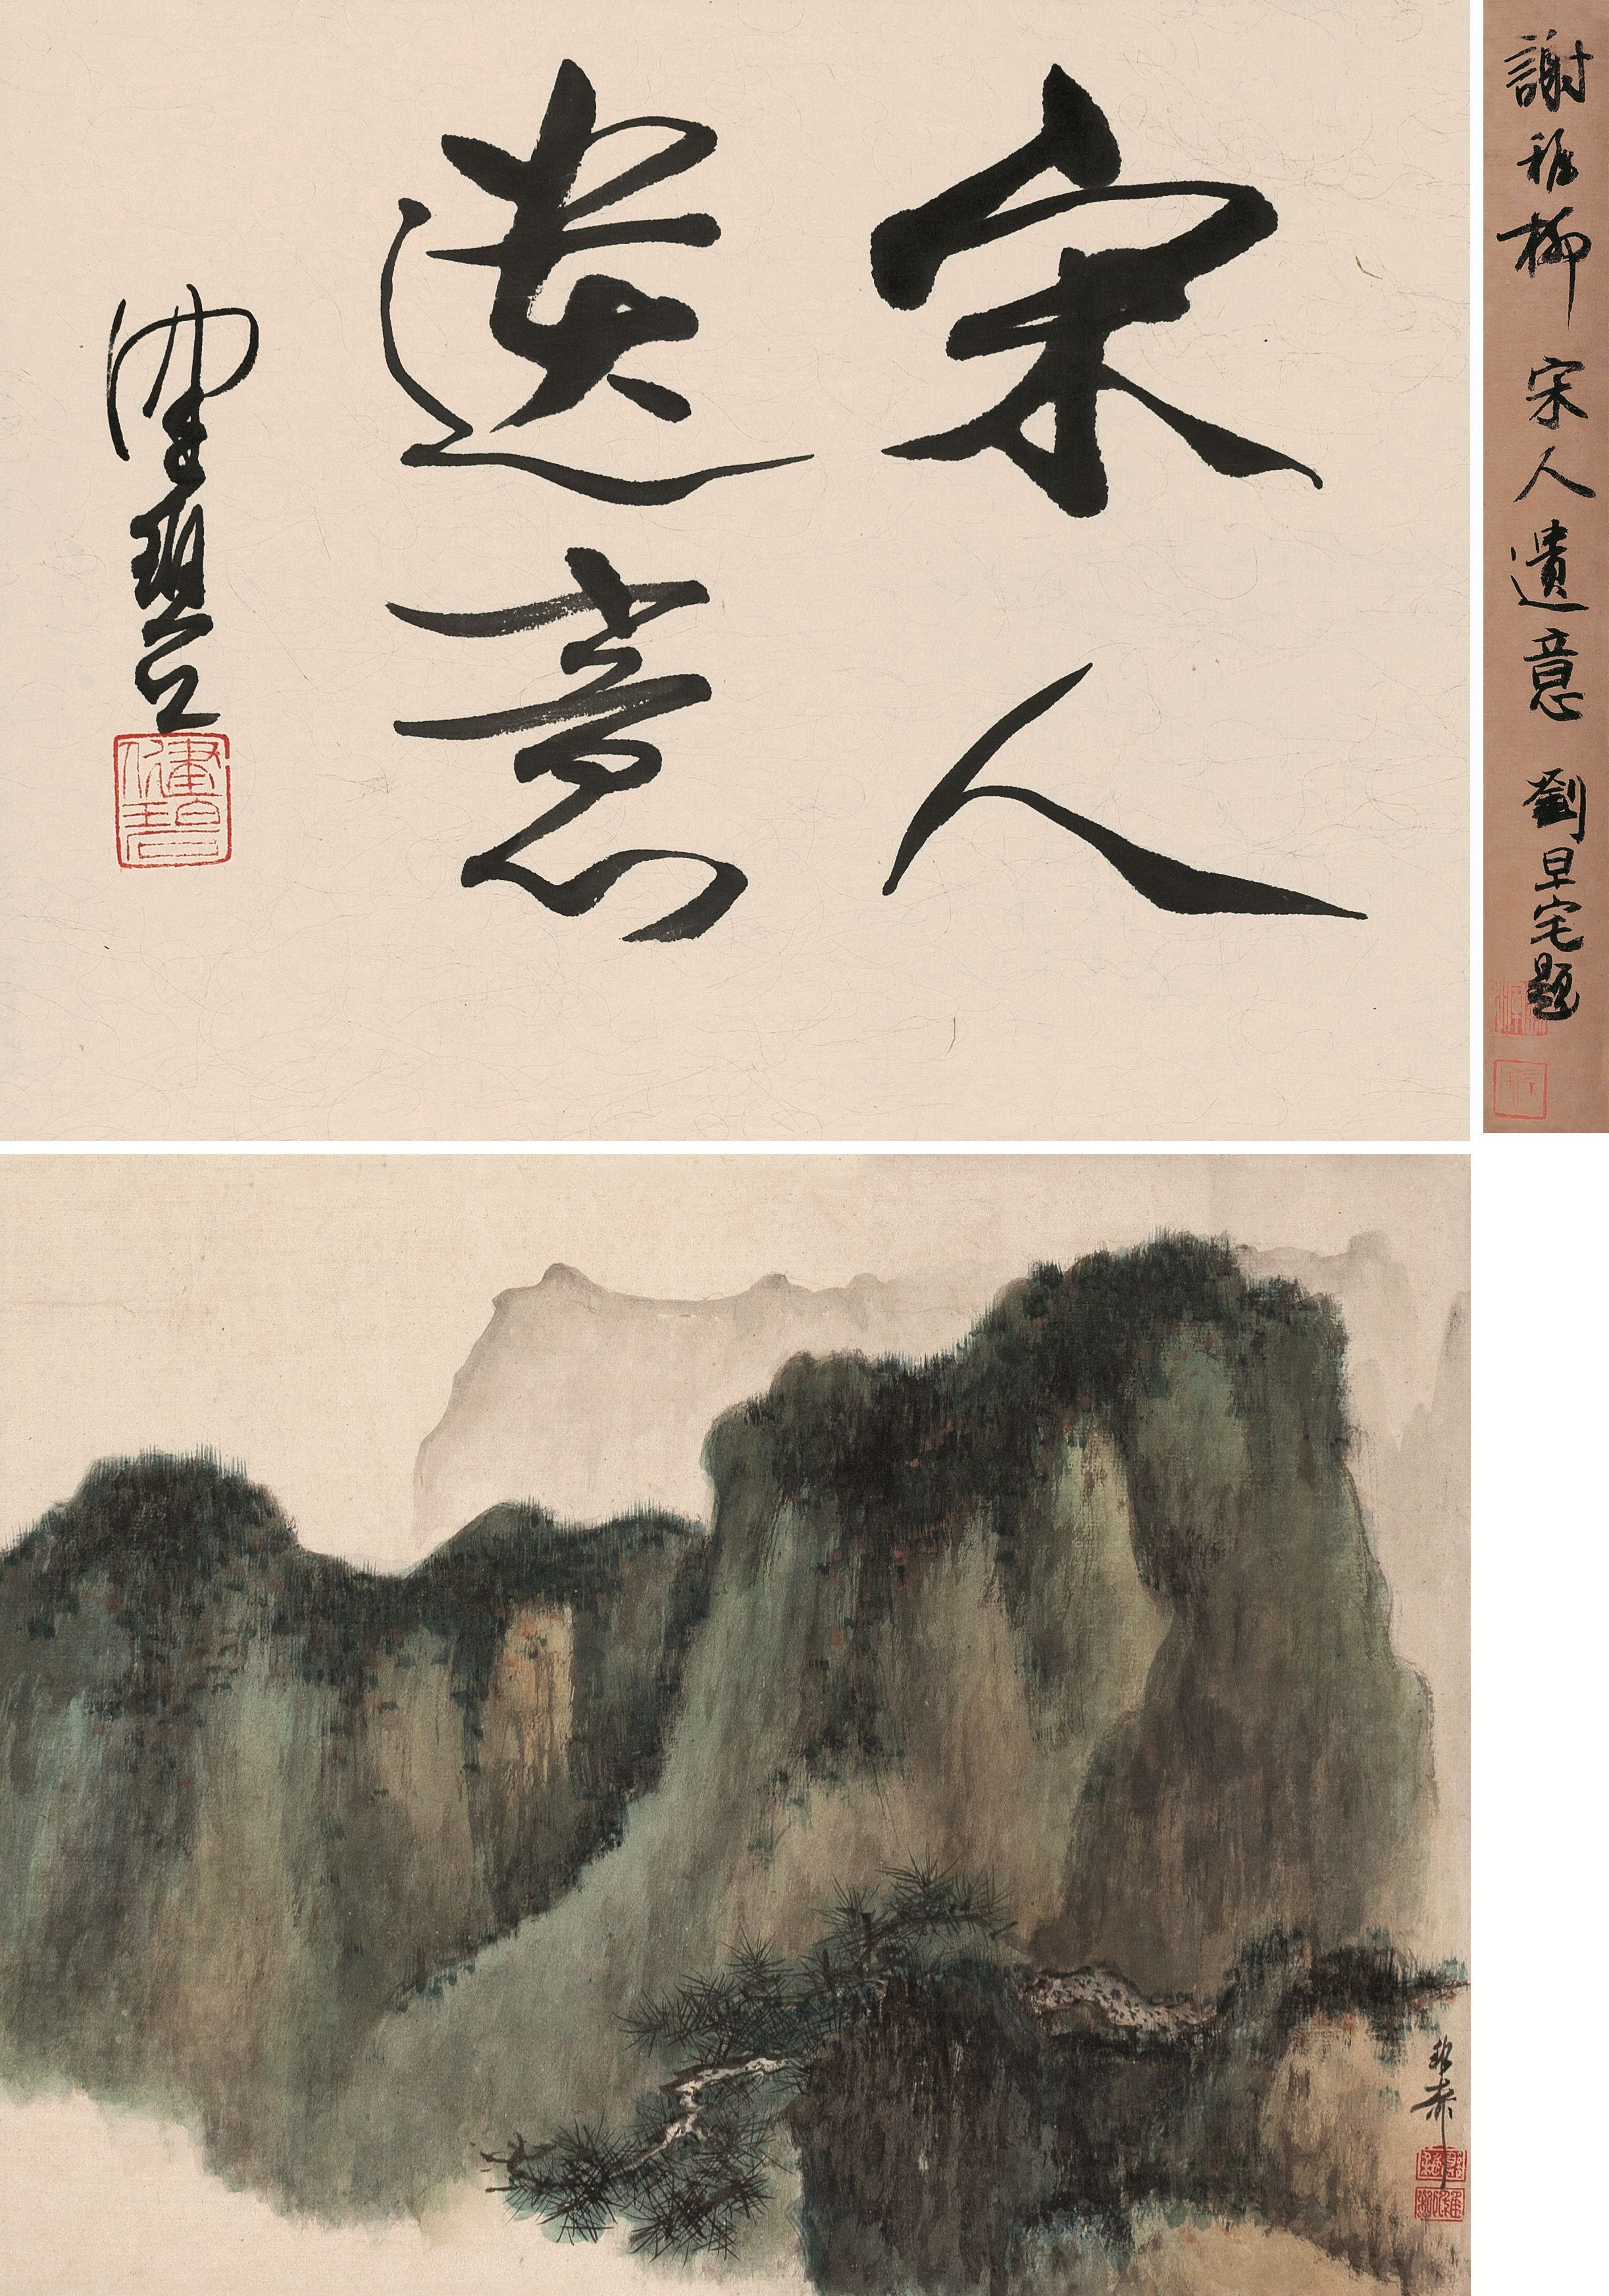 謝稚柳 宋人遺意 劉旦宅題
宋人
遺意
健碧
健碧
稚柳